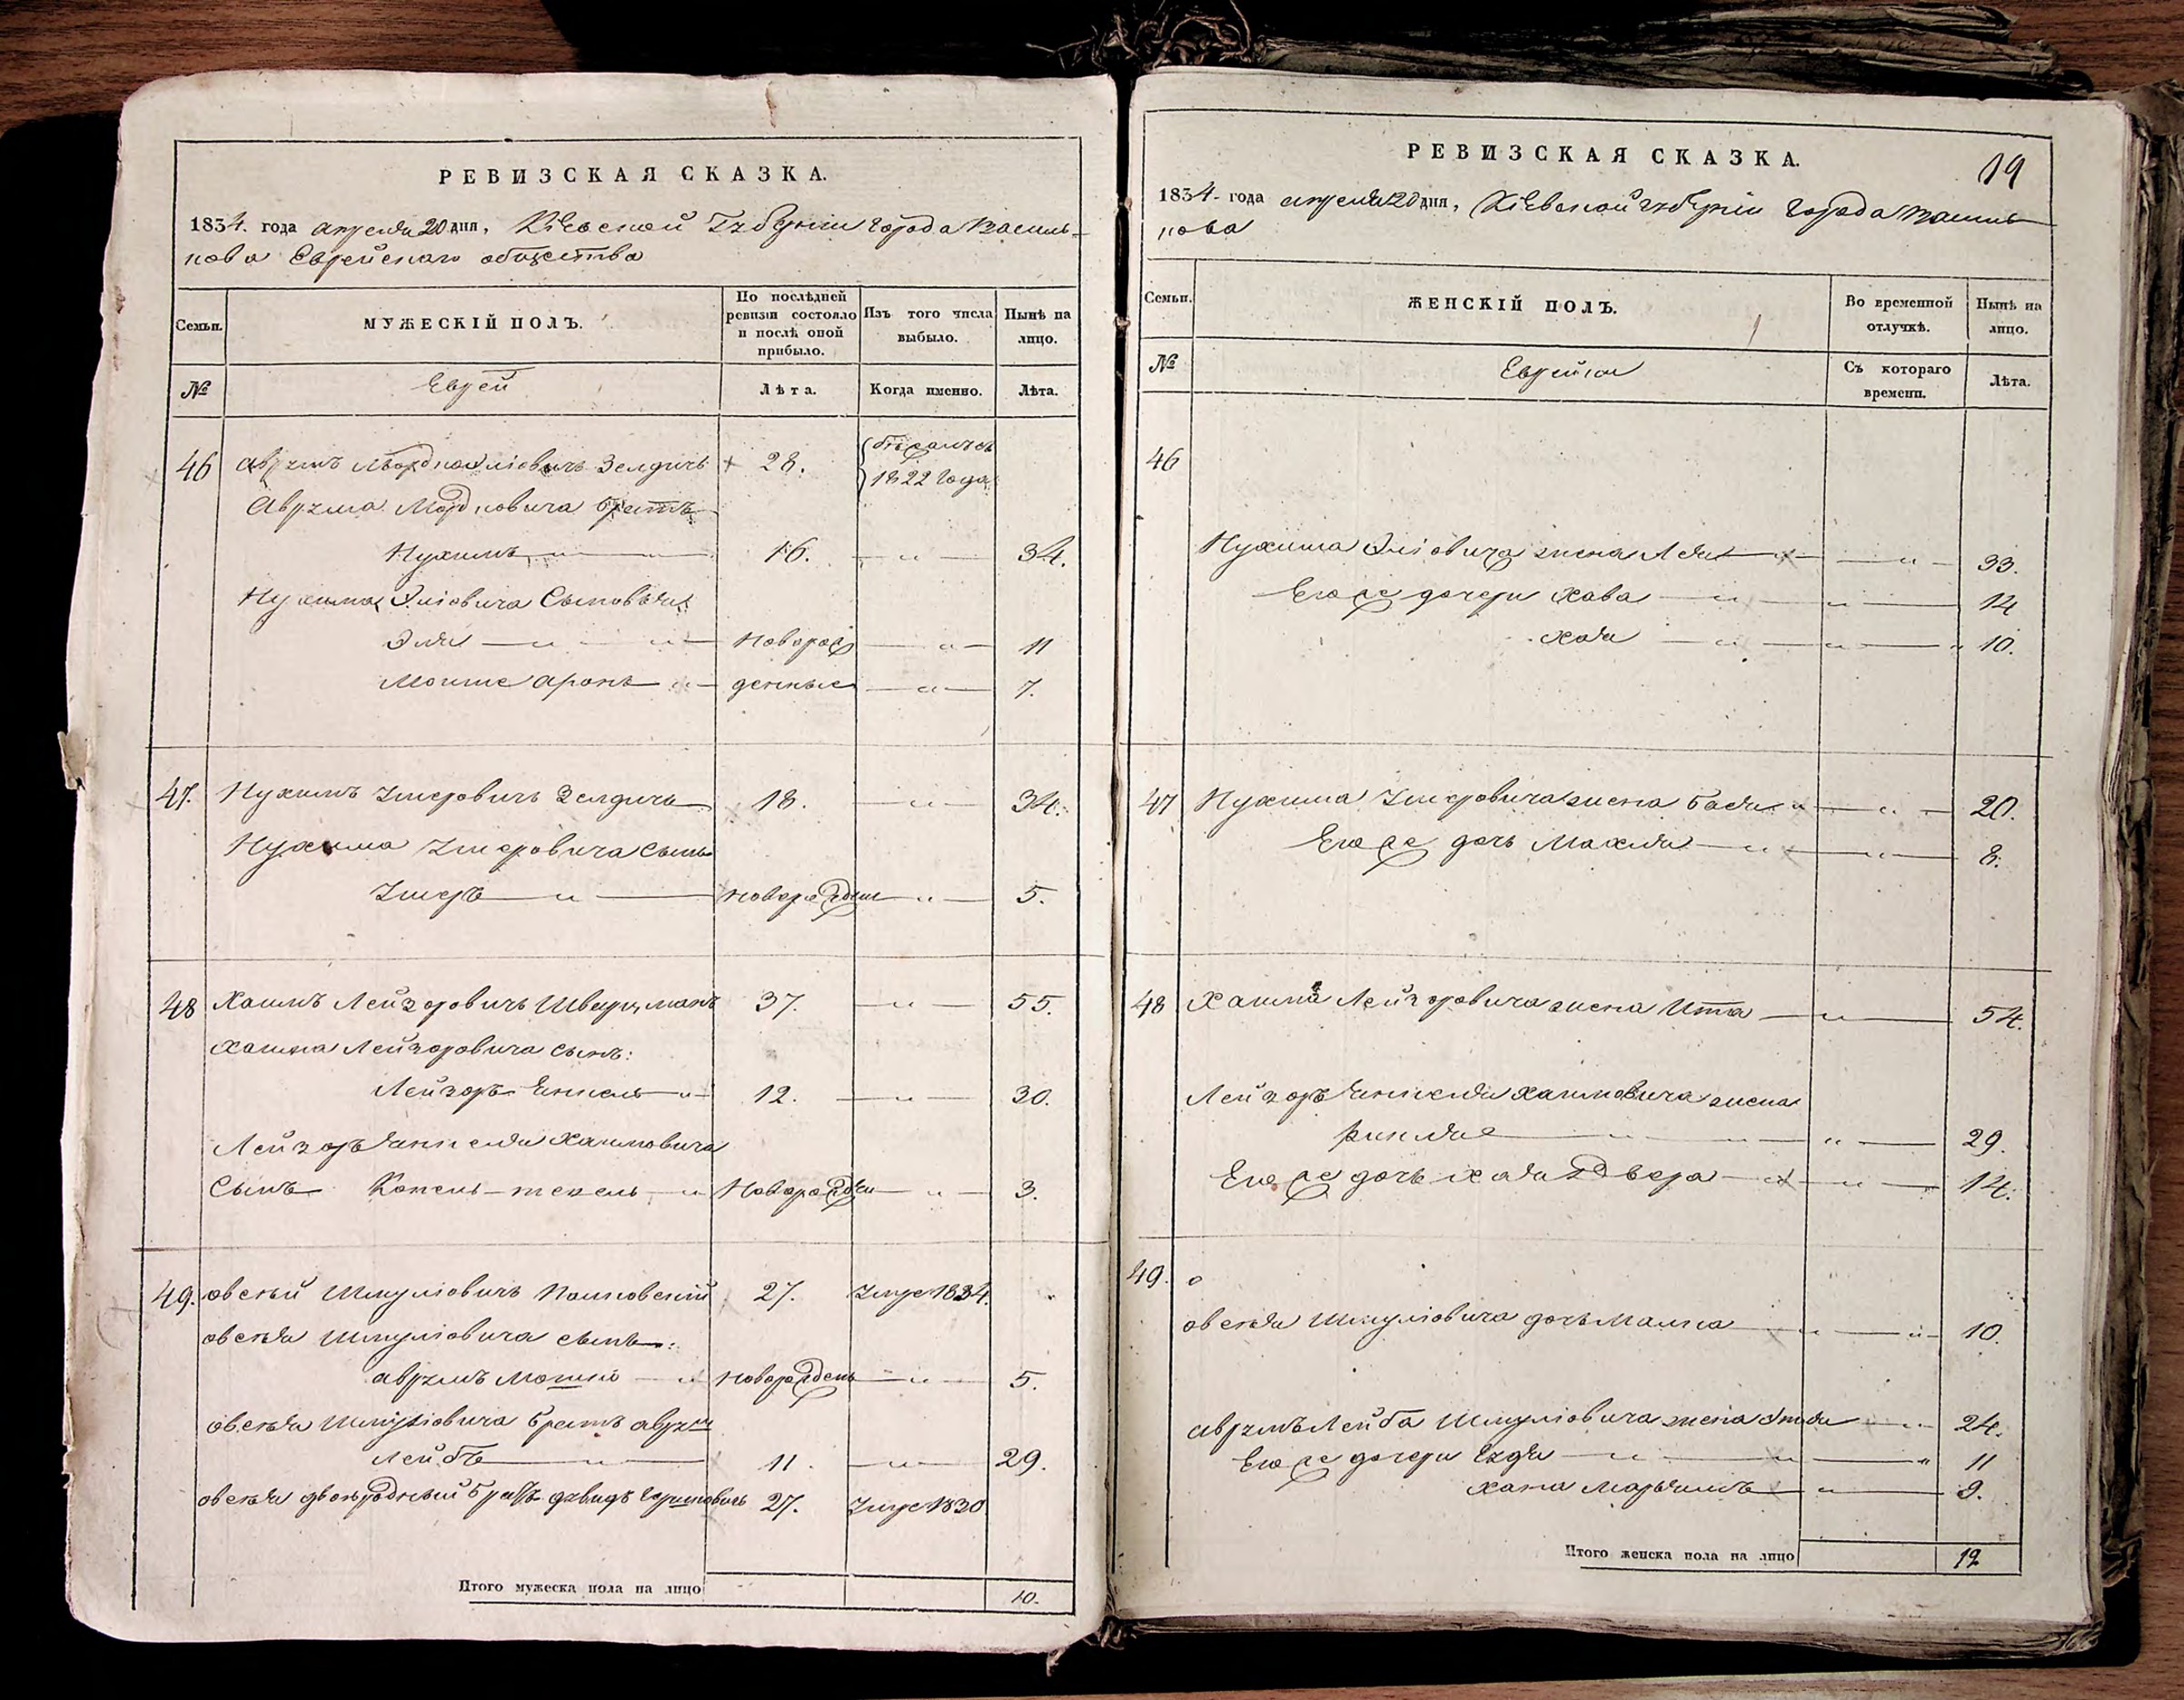 РЕВИЗСКАЯ СКАЗКА.
1834. года апреля 20 дня, Кіевской Губерніи города Василь-
кова Еврейскаго общества
Семьи.
МУЖЕСКІЙ ПОЛЪ.
По послѣдней ревизіи состояло и послѣ оной прибыло.
Изъ того числа выбыло.
Нынѣ на лицо.
№
Еврей
Лѣта.
Когда именно.
Лѣта.
46 Аврумъ Зелдичь 28.
1822 года
Аврума Мордковича братъ
Нухимъ — " — 16. — " — 34.
Нухима Эліовича Сыновья:
Эля — " — новорож — " — 11
Мошие Аронъ — " — денные — " — 7.
47. Нухимъ Умеровичь Зелдичь 18. — " — 34.
Нухима Умеровича Сынъ
Умеръ — " — новорожден — " — 5.
48 Хаимъ Лейзоровичь Шварцманъ 37. — " — 55.
Хаима Лейзоровича сынъ:
Лейзоръ Янкель — " — 12. — " — 30.
Лейзоръ Янкеля Хаимовича
Сынъ — " Новорожден — " — 3.
49. овсѣй Шмуліовичь 27. Умре 1834.
овсѣя Шмуліовича сынъ:
аврумъ Мошко — " новорожденъ — " — 5.
овсѣя Шмуліовича братъ аврум
Лейбъ — " — 11. — " — 29.
овсѣя двоюродный братъ давидъ 27. Умре 1830
Итого мужеска пола на лицо 10.
РЕВИЗСКАЯ СКАЗКА.
19
1834. года апреля 20 дня, Кіевской губерніи города Василь
кова
Семьи.
ЖЕНСКІЙ ПОЛЪ.
Во временной отлучкѣ.
Нынѣ на лицо.
№
Еврейки
Съ котораго времени.
Лѣта.
46
Нухима Эліовича жена Лея — " — 33.
Его же дочери Хава — " — 14
Хая — " — 10.
47 Нухима Умеровича жена Бася — " — 20.
Его же дочь Махля — " — 8.
48 Хаима Лейзоровича жена Ита — " — 54.
Лейзоръ Янкеля Хаимовича жена
Рикля — " — 29.
Его же дочь хая Двера — " — 14.
49.
овсѣя Шмуліовича дочь Малка — " — 10.
аврумъ Лейба Шмуліовича жена Этля — " 24.
Его же дочери — " — 11
хана Марьямъ — " — 9.
Итого женска пола на лицо 12